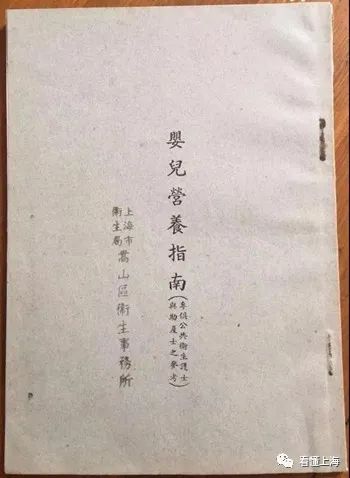 嬰兒營養指南
(專供公共衞生護士
與助產士之參考)
上海市
衞生局
嵩山區衞生事務所
看懂上海